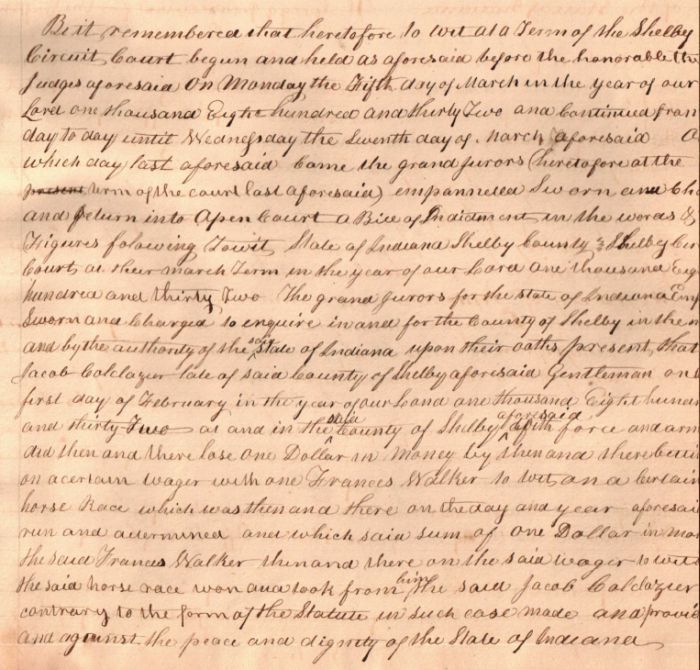 Be it remembered that heretofore to wit at a Term of the Shelby
Circuit Court begun and held as aforesaid before the honorable the
Judges aforesaid On Monday the Fifth day of March in the year of our
Lord one thousand Eight hundred and thirty Two and Continued from
day to day until Wednesday the Seventh day of March aforesaid
which day last aforesaid Came the grand jurors (heretofore at the
present term of the court last aforesaid) empannelled Sworn and Cha
and return into Open Court a Bill of Indictment in the words &
Figures folowing Towit State of Indiana Shelby County & Shelby Cir
Court at their march Term in the year of our Lord one thousand Eig
hundred and thirty Two The grand jurors for the State of Indiana Em
Sworn and Charged to enquire in and for the County of Shelby in the n
and by the authority of the said State of Indiana upon their oaths present, that
Jacob Calclazer late of said County of Shelby aforesaid gentleman on
first day of February in the year of our Lord one thousand Eight hun
and thirty Two at and in the said County of Shelby aforesaid With force and arm
did then and there lose one Dollar in money by then and there bettin
on a certain wager with one Frances Walker to wit on a Certain
horse Race which was then and there on the day and year aforesai
run and determined and which said sum of one Dollar in mon
the said Frances Walker then and there on the said wager to wit
the said horse race won and took from him the said Jacob Calclazier
contrary to the form of the Statute in such case made and provid
and against the peace and dignity of the State of Indiana